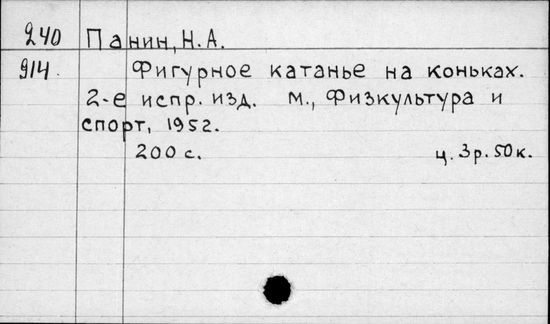 240 Панин, Н.А.
914. Фигурное катанье на коньках.
2-е испр. изд. М., Физкультура и
спорт, 1952.
200 с. ц. 3р. 50к.